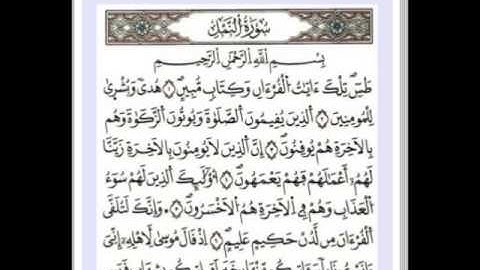 سُورَةُ النَّمْلِ
بِسْمِ اللَّهِ الرَّحْمَٰنِ الرَّحِيمِ
طَسِٓ تِلْكَ ءَايَٰتُ الْقُرْءَانِ وَكِتَابٍ مُّبِينٍ هُدًى وَبُشْرَىٰ
لِلْمُومِنِينَ الَّذِينَ يُقِيمُونَ الصَّلَوٰةَ وَيُوتُونَ الزَّكَوٰةَ وَهُم
بِالَاخِرَةِ هُمْ يُوقِنُونَ إِنَّ الَّذِينَ لَا يُومِنُونَ بِالَاخِرَةِ زَيَّنَّا
لَهُمُۥٓ أَعْمَٰلَهُمْ فَهُمْ يَعْمَهُونَ أُوْلَٰٓئِكَ الَّذِينَ لَهُمْ سُوٓءُ
الْعَذَابِ وَهُمْ فِي الَاخِرَةِ هُمُ الَاخْسَرُونَ وَإِنَّكَ لَتُلَقَّى
الْقُرْءَانَ مِن لَّدُنْ حَكِيمٍ عَلِيمٍ إِذْ قَالَ مُوسَىٰ لِأَهْلِهِۦٓ إِنِّيَ